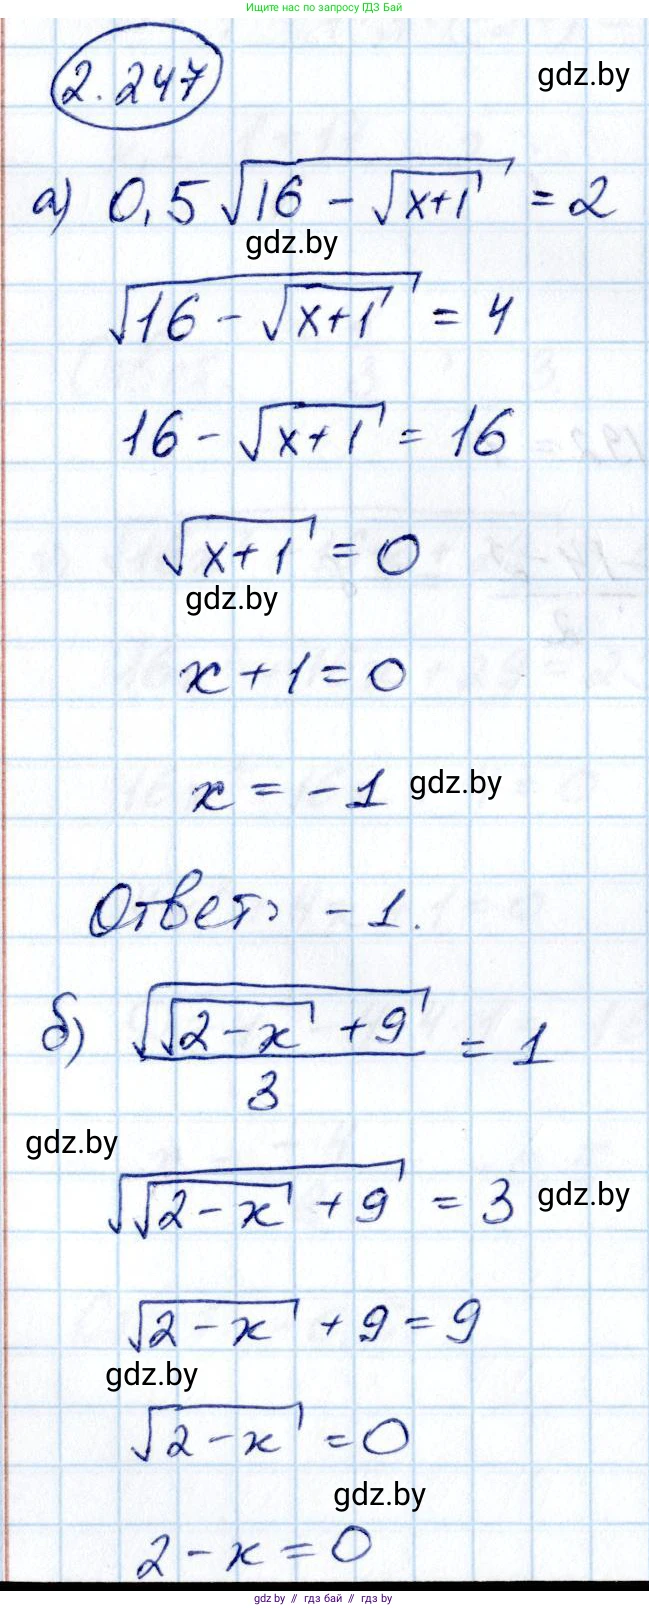 Ищите нас по запросу ГДЗ Бай
2.247
gdz.by
а) 0,5√(16 - √(x+1)) = 2
gdz.by
√(16 - √(x+1)) = 4
16 - √(x+1) = 16
√(x+1) = 0
gdz.by
x + 1 = 0
x = -1 gdz.by
Ответ: -1.
б) √(√(2-x) + 9) / 3 = 1
gdz.by
√(√(2-x) + 9) = 3 gdz.by
√(2-x) + 9 = 9
gdz.by
√(2-x) = 0
gdz.by
2 - x = 0
gdz.by // гдз бай // гдз.by